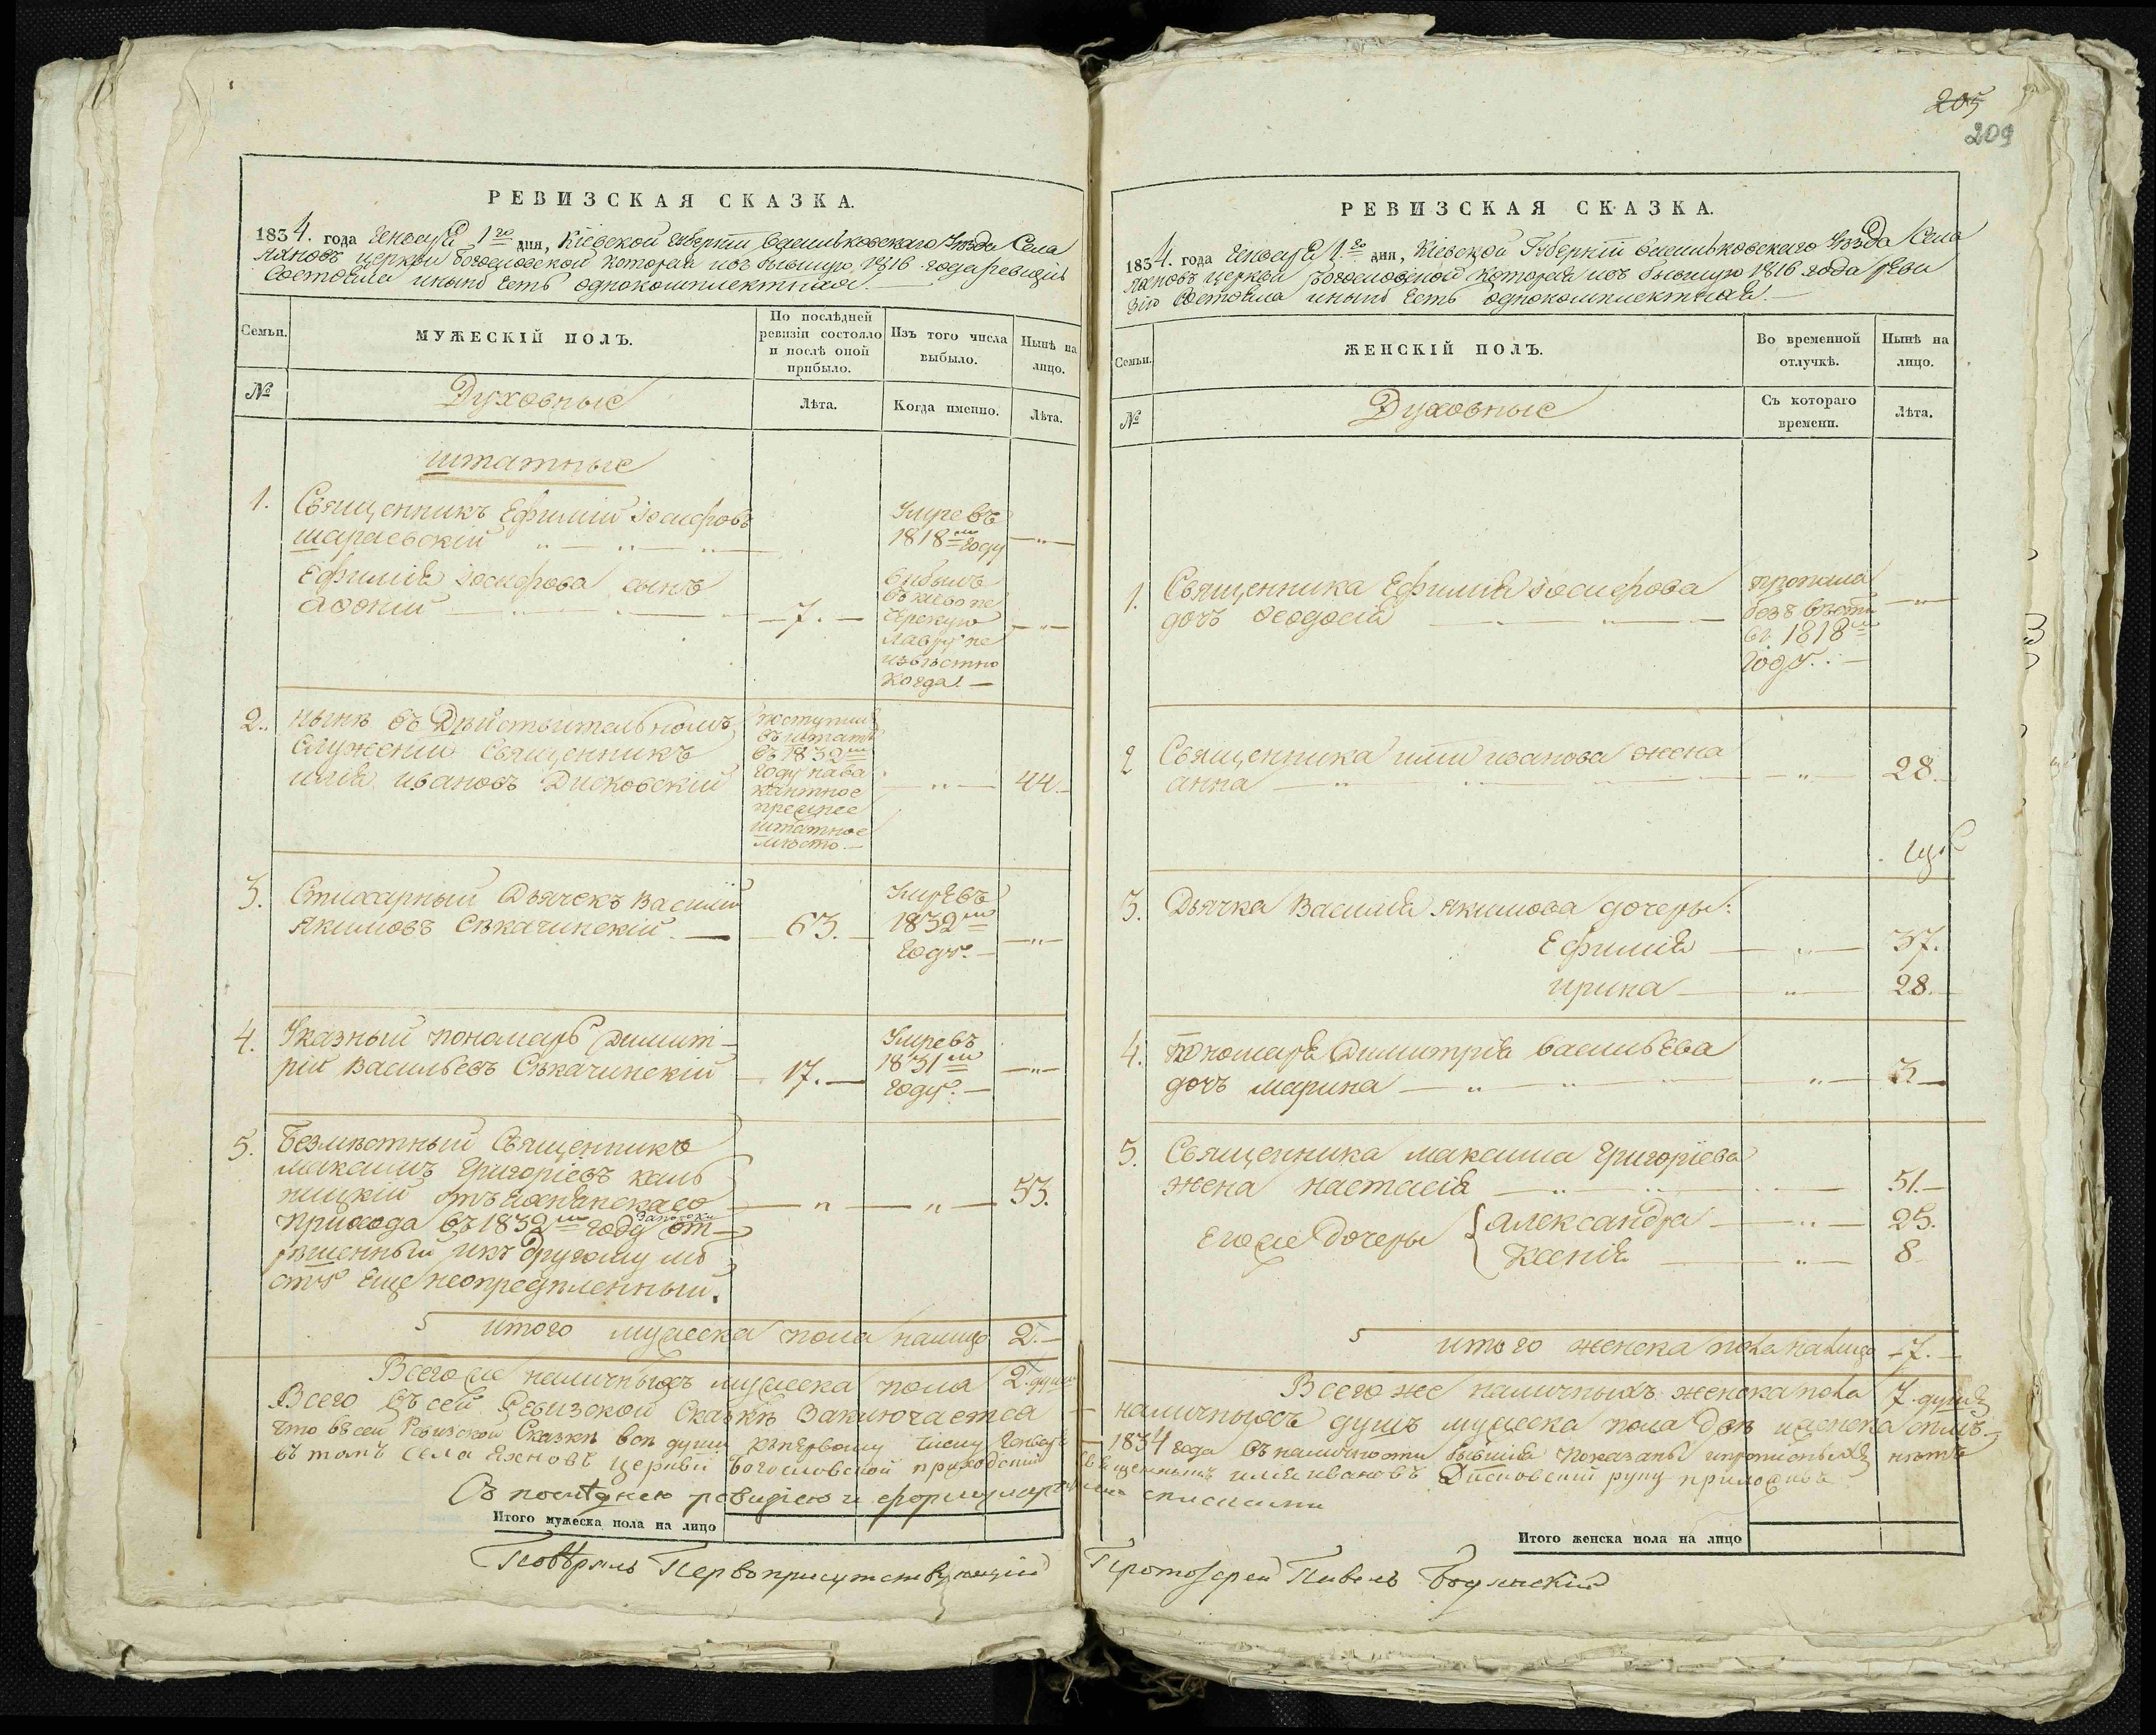 205
209
РЕВИЗСКАЯ СКАЗКА.
1834. года Генваря 1го дня, Кіевской Губерніи Васильковскаго Уезда Села
Яхновъ церкви Богословской которая изъ бывшую 1816 года ревизію
Состояла инынѣ есть однокомплектная.
Семьи.
МУЖЕСКІЙ ПОЛЪ.
По послѣдней
ревизіи состояло
и послѣ оной
прибыло.
Изъ того числа
выбыло.
Нынѣ на
лицо.
№
Духовные
Лѣта.
Когда именно.
Лѣта.
штатные
1. Священникъ Ефимій Іосифовъ
шараевскій
Умре въ
1818м году
Ефимія Іосифова сынъ
7.
выбылъ
въ кіево пе
черскую
Лавру не
извѣстно
когда.
2. нынѣ въ Дѣйствительномъ
служеніи Священникъ
илія ивановъ Дисковскій
поступилъ
въ штатъ
въ 1832м
году на ва
кантное
прежнее
штатное
мѣсто.
44.
3. Стихарный Дьячекъ Василій
Якимовъ Секачинскій.
63.
Умре въ
1832м
году.
4. Указный пономарь Димит-
рій Васильевъ Секачинскій
17.
Умре въ
1831м
году.
5. Безмѣстный Священникъ
максимъ Григоріевъ каль
ницкій отъ
прихода въ 1832м году от-
рѣшенный икъ другому мѣ
сту еще неопределенный.
53.
5 итого мужеска пола налицо 2.
Всего же наличныхъ мужеска пола 2. души
Всего въ сей Ревизской Сказкѣ заключается
Что въ сей Ревизской Сказкѣ всѣ души къ первому числу Генваря
въ томъ села Яхновъ церкви Богословской приходскій
Съ послѣднею ревизіею и формулярными
Итого мужеска пола на лицо
Повѣрялъ Первоприсутствующій
РЕВИЗСКАЯ СКАЗКА.
1834. года Генваря 1го дня, Кіевской Губерніи Васильковскаго Уезда Села
Яхновъ церкви Богословской которая изъ бывшую 1816 года реви
зію Состояла инынѣ есть однокомплектная.
Семьи.
ЖЕНСКІЙ ПОЛЪ.
Во временной
отлучкѣ.
Нынѣ на
лицо.
№
Духовные
Съ котораго
времени.
Лѣта.
1. Священника Ефимія Іосифова
дочъ Феодосія
пропала
безъ вѣсти
въ 1818м
году.
2 Священника иліи иванова жена
анна
28.
3. Дьячка Василія Якимова дочеры:
Ефимія 37.
ирина 28.
4. Пономаря Димитрія васильева
дочъ марина 3.
5. Священника максима Григоріева
жена настасія 51.
Егоже Дочеры Александра 25.
Ксенія 8
5 итого женска пола налицо 7.
Всего же наличныхъ женска пола 7. душъ
наличныхъ душъ мужеска пола двѣ иженска семь.
1834 года въ наличности бывшія показаны ипрописныхъ нѣтъ
священникъ илія ивановъ Дисковскій руку приложилъ
списками
Итого женска пола на лицо
Протоіерей Павелъ